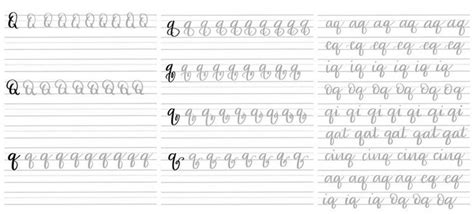 Q Q Q Q Q Q Q Q Q
Q Q Q Q Q Q Q Q Q
q q q q q q q q q q
q q q q q q q q q q
q q q q q q q q q q
q q q q q q q q q q
q q q q q q q q q q
aq aq aq aq aq
eq eq eq eq eq
iq iq iq iq iq
oq oq oq oq oq
qi qi qi qi qi
qat qat qat qat
cinq cinq cinq
aq aq eq eq eq
iq iq oq oq oq